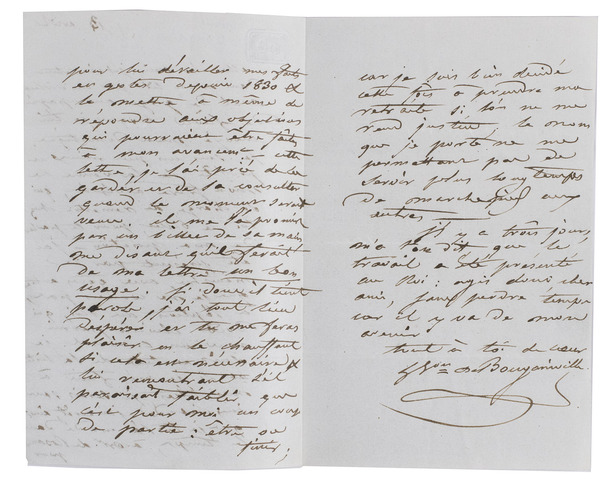 3
pour lui détailler mes faits
en gestes depuis 1830 et
le mettre à même de
répondre aux objections
qui pourraient être faites
à mon avancemt. cette
lettre, je l'ai prié de la
garder et de la consulter
quand le moment serait
venu. il me l'a promis
par un billet de sa main
me disant qu'il ferait
de ma lettre un bon
usage. Si donc il tient
parole, j'ai tout lieu
d'espérer et tu me feras
plaisir en le chauffant
si cela est nécessaire et
lui remontrant s'il
paraissait faiblir que
c'est pour moi un coup
de partie : être ou
finir ;
car je suis bien décidé
cette fois à prendre ma
retraite si l'on ne me
rend justice, le nom
que je porte ne me
permettant pas de
servir plus longtemps
de marchepied aux
autres.
Il y a trois jours,
m'a-t-on dit que le
travail a été présenté
au Roi : agis donc cher
ami, sans perdre temps
car il y va de mon
avenir
tout à toi de cœur
Bon de Bougainville